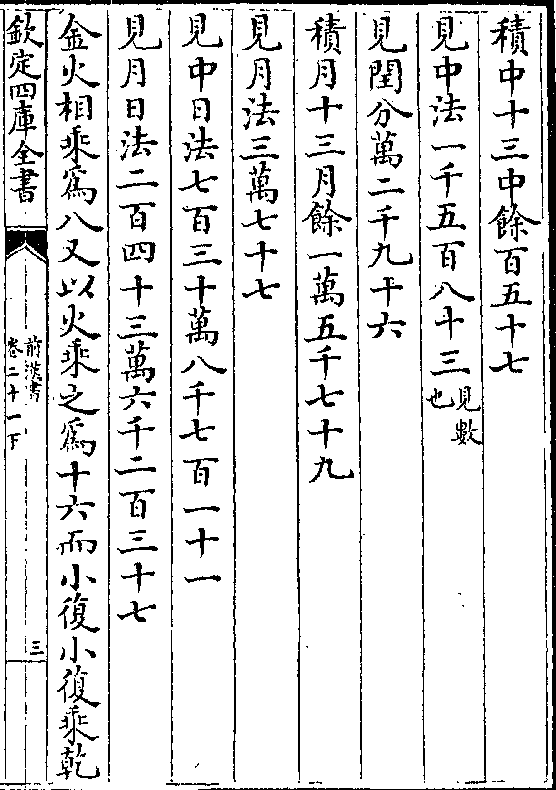 積中十三中餘百五十七
見中法一千五百八十三見數也
見閏分萬二千九十六
積月十三月餘一萬五千七十九
見月法三萬七十七
見中日法七百三十萬八千七百一十一
見月日法二百四十三萬六千二百三十七
金火相乘爲八又以火乘之爲十六而小復小復乘乾
欽定四庫全書
前漢書
卷二十一下
三